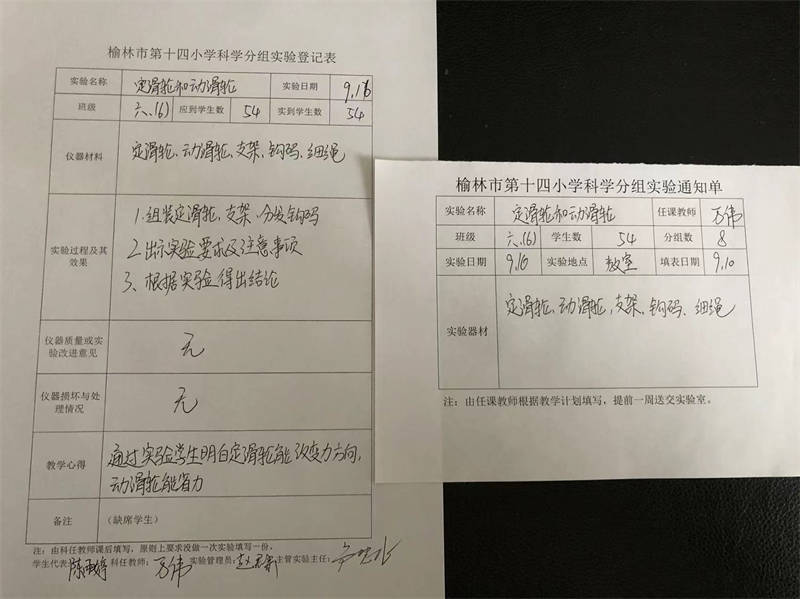 榆林市第十四小学科学分组实验登记表
实验名称 定滑轮和动滑轮 实验日期 9.16
班级 六.(6) 应到学生数 54 实到学生数 54
仪器材料 定滑轮、动滑轮、支架、钩码、细绳
1.组装定滑轮、支架、分发钩码
实验过程及其
效果
2.出示实验要求及注意事项
3、根据实验得出结论
仪器质量或实
验改进意见
无
仪器损坏与处
理情况
无
教学心得
通过实验学生明白定滑轮能改变力方向,
动滑轮能省力
备注 (缺席学生)
注:由科任教师课后填写,原则上要求没做一次实验填写一份。
学生代表: 科任教师: 万伟 实验管理员: 主管实验主任:
榆林市第十四小学科学分组实验通知单
实验名称 定滑轮和动滑轮 任课教师 万伟
班级 六.(6) 学生数 54 分组数 8
实验日期 9.16 实验地点 教室 填表日期 9.10
实验器材 定滑轮、动滑轮、支架、钩码、细绳
注:由任课教师根据教学计划填写,提前一周送交实验室。